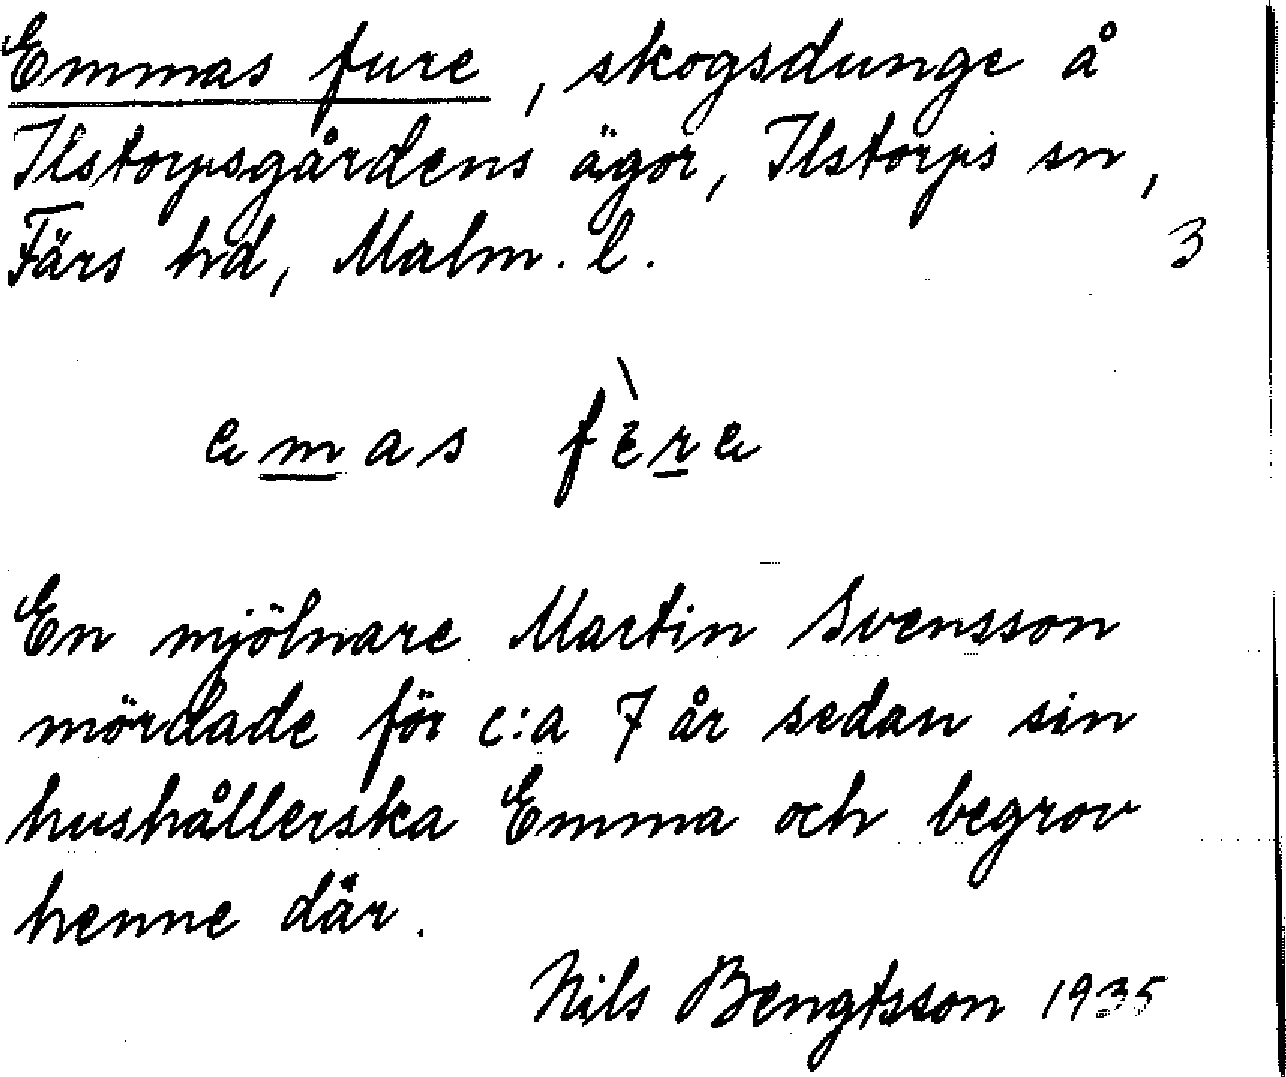 Emmas fure, skogsdunge å
Ilstorpsgårdens ägor, Ilstorps sn,
Färs hd, Malm. l. 3
emas fère
En mjölnare Martin Svensson
mördade för c:a 7 år sedan sin
hushållerska Emma och begrov
henne där.
Nils Bengtsson 1935